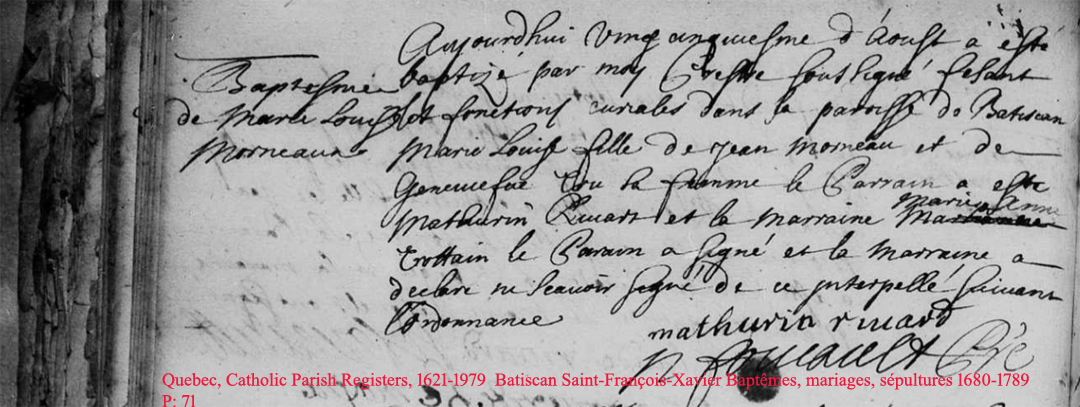 Aujourdhui Vingt cinquiesme d'Aoust a esté
baptizé par moy Prestre soussigné fesant
les fonctions curiales dans la paroisse de Batiscan
Marie Louise fille de Jean Morneau et de
Geneviefve Tru sa femme le Parrain a esté
Mathurin Rivart et la Marraine Marie Anne
Trottain le Parain a signé et la Marraine a
declaré ne scavoir signé de ce interpellé suivant
l'ordonnance
Baptesme
de Marie Louise
Morneau
mathurin rivard
N foucault Ptre
Quebec, Catholic Parish Registers, 1621-1979 Batiscan Saint-François-Xavier Baptêmes, mariages, sépultures 1680-1789
P: 71